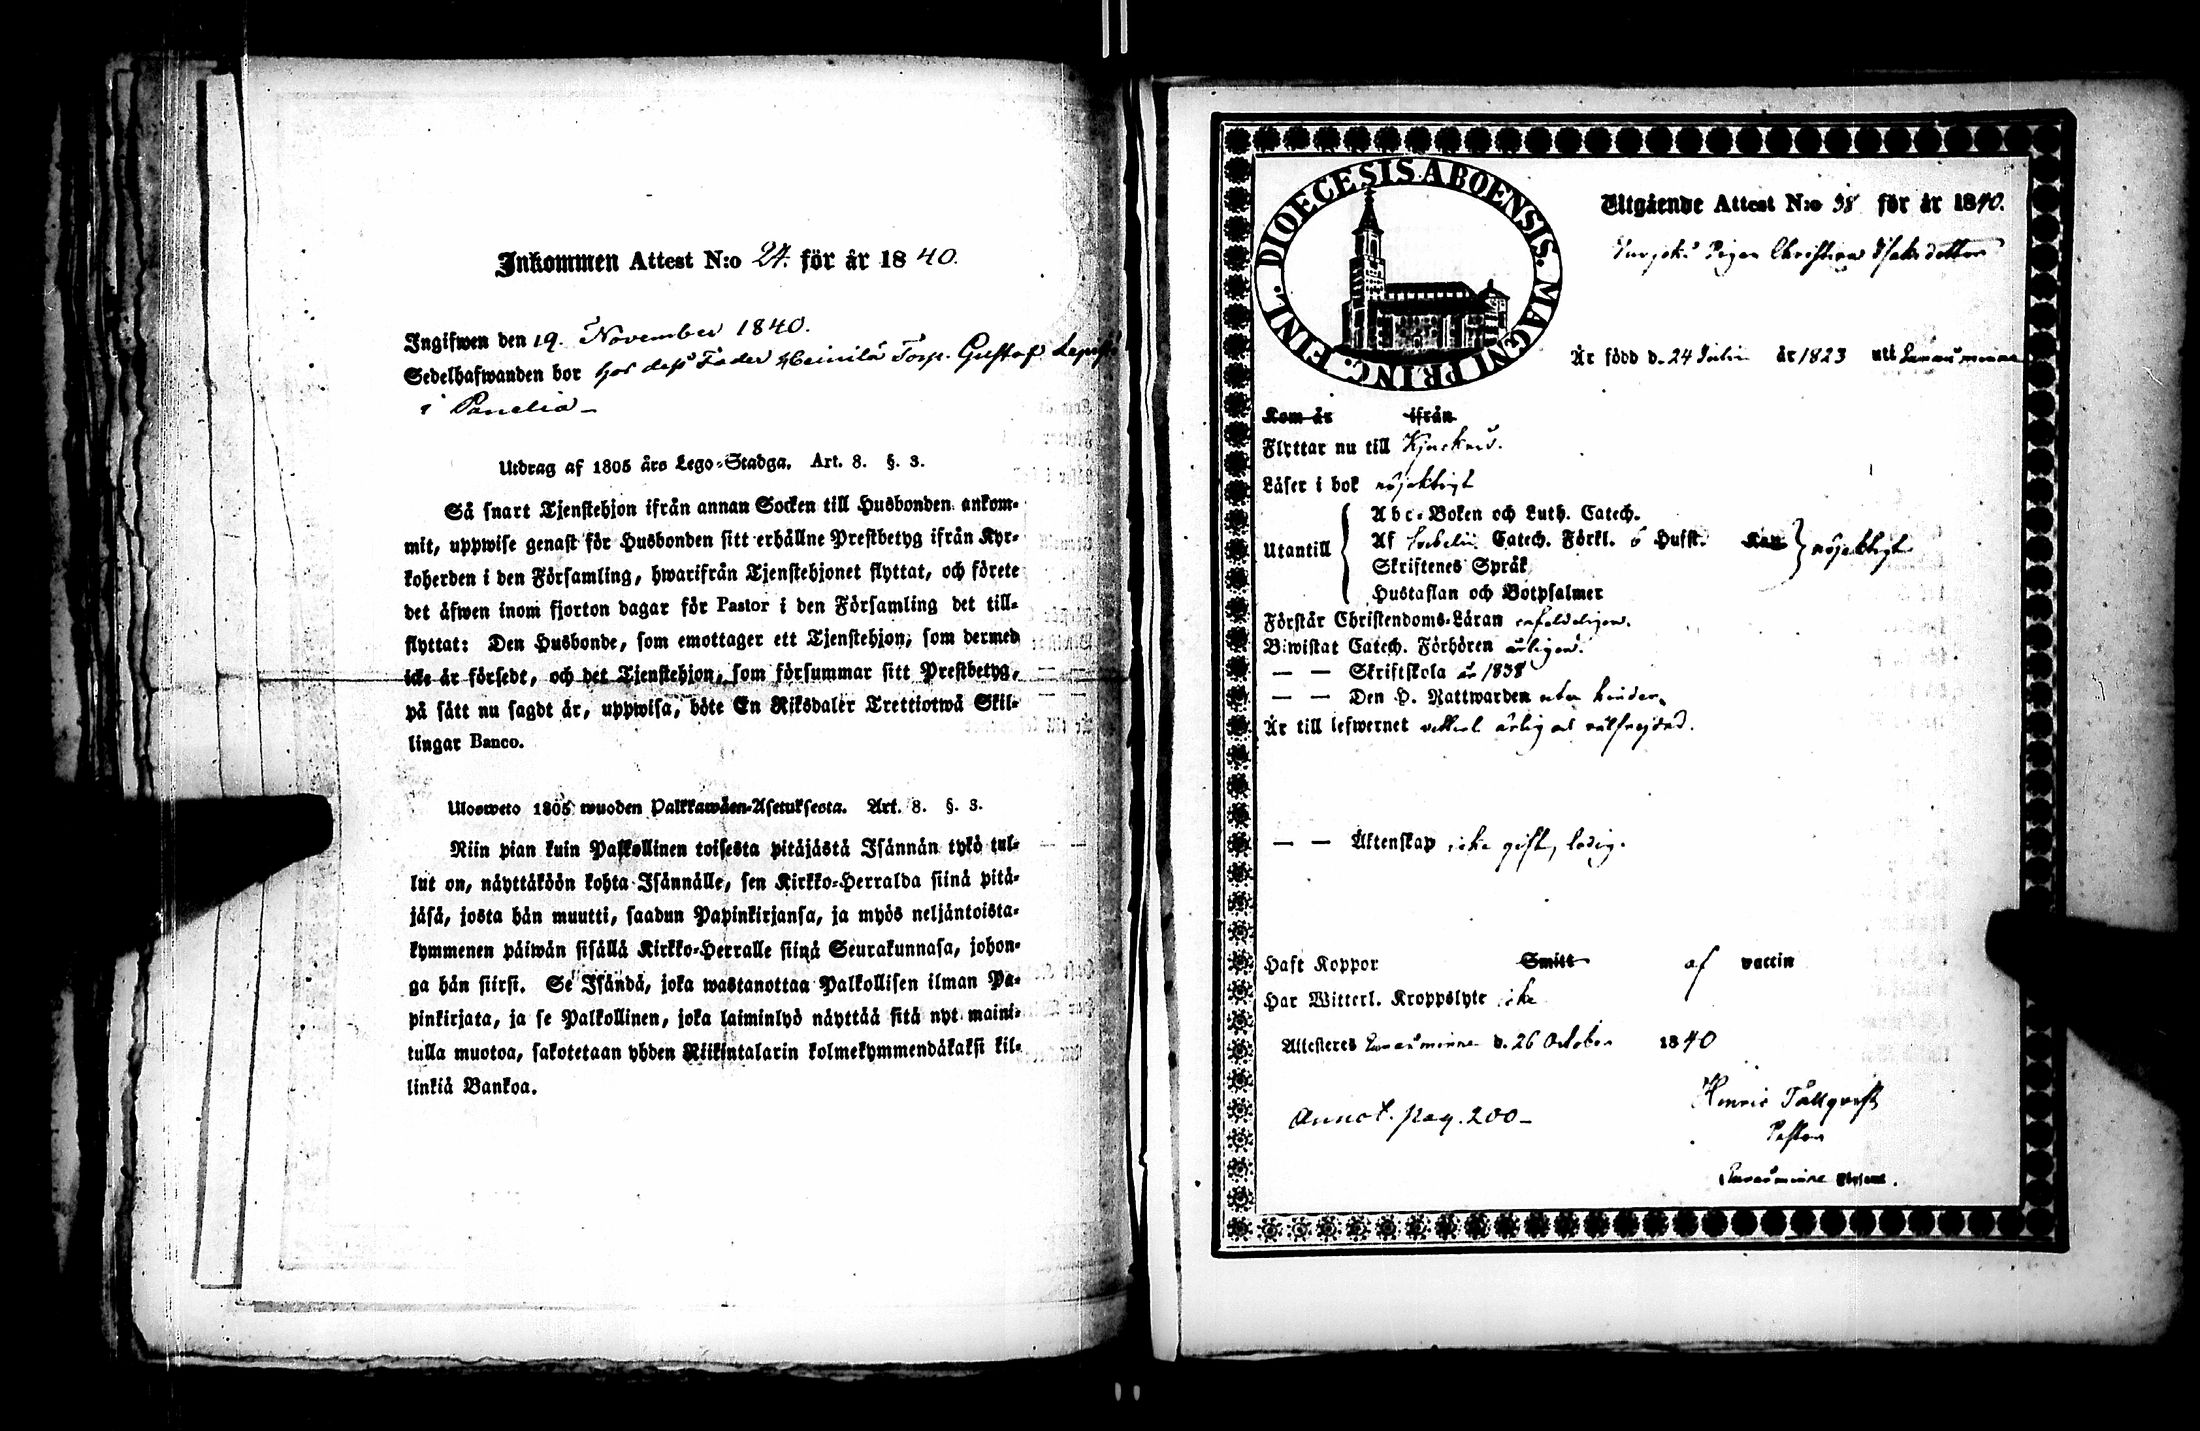 Inkommen Attest N:o 24. för år 1840.
Ingifwen den 19. November 1840.
Sedelhafwanden bor hos dess Fader Heinilä Torp. Gustaf
i Panelia
Utdrag af 1805 års Lego-Stadga. Art. 8. §. 3.
Så snart Tjenstehjon ifrån annan Socken till Husbonden ankom-
mit, uppwise genast för Husbonden sitt erhållne Prestbetyg ifrån Kyr-
koherden i den Församling, hwarifrån Tjenstehjonet flyttat, och förete
det äfwen inom fjorton dagar för Pastor i den Församling det till-
flyttat: Den Husbonde, som emottager ett Tjenstehjon, som dermed
icke är försedt, och det Tjenstehjon, som försummar sitt Prestbetyg,
på sätt nu sagdt är, uppwisa, böte En Riksdaler Trettiotwå Skil-
lingar Banco.
Ulosweto 1805 wuoden Palkkawäen-Asetuksesta. Art. 8. §. 3.
Niin pian kuin Palkollinen toisesta pitäjästä Isännän tykö tul-
lut on, näyttäköön kohta Isännälle, sen Kirkko-Herralda siinä pitä-
jäsä, josta hän muutti, saadun Papinkirjansa, ja myös neljäntoista-
kymmenen päiwän sisällä Kirkko-Herralle siinä Seurakunnasa, johon-
ga hän siirsi. Se Isändä, joka wastanottaa Palkollisen ilman Pa-
pinkirjata, ja se Palkollinen, joka laiminlyö näyttää sitä nyt maini-
tulla muotoa, sakotetaan yhden Riikintalarin kolmekymmendäkaksi kil-
linkiä Bankoa.
DIOECESIS ABOENSIS. MAGNI PRINC. FINL.
Utgående Attest N:o 38 för år 1840.
Pigan Christina Isaksdotter
Är född d. 24 Julii år 1823 uti Euraåminne
Kom år ifrån
Flyttar nu till Kjuckais.
Läser i bok nöjaktigt
Utantill
Abc-Boken och Luth. Catech.
Af Catech. Förkl. o Husst. Kan nöjaktigt
Skriftenes Språk
Hustaflan och Botpsalmer
Förstår Christendoms-Läran enfaldeligen.
Biwistat Catech. Förhören årligen.
— — Skriftskola år 1838
— — Den H. Nattwarden utan hinder.
Är till lefwernet wetterl. ärlig och välfrejdad.
— — Äktenskap icke gift, ledig.
Haft Koppor Smitt af vaccin
Har Witterl. Kroppslyte icke
Attesteres Euraåminne d. 26 October 1840
Henric Tallqvist
Pastor
Annot. pag. 200—
Euraåminne Församl.